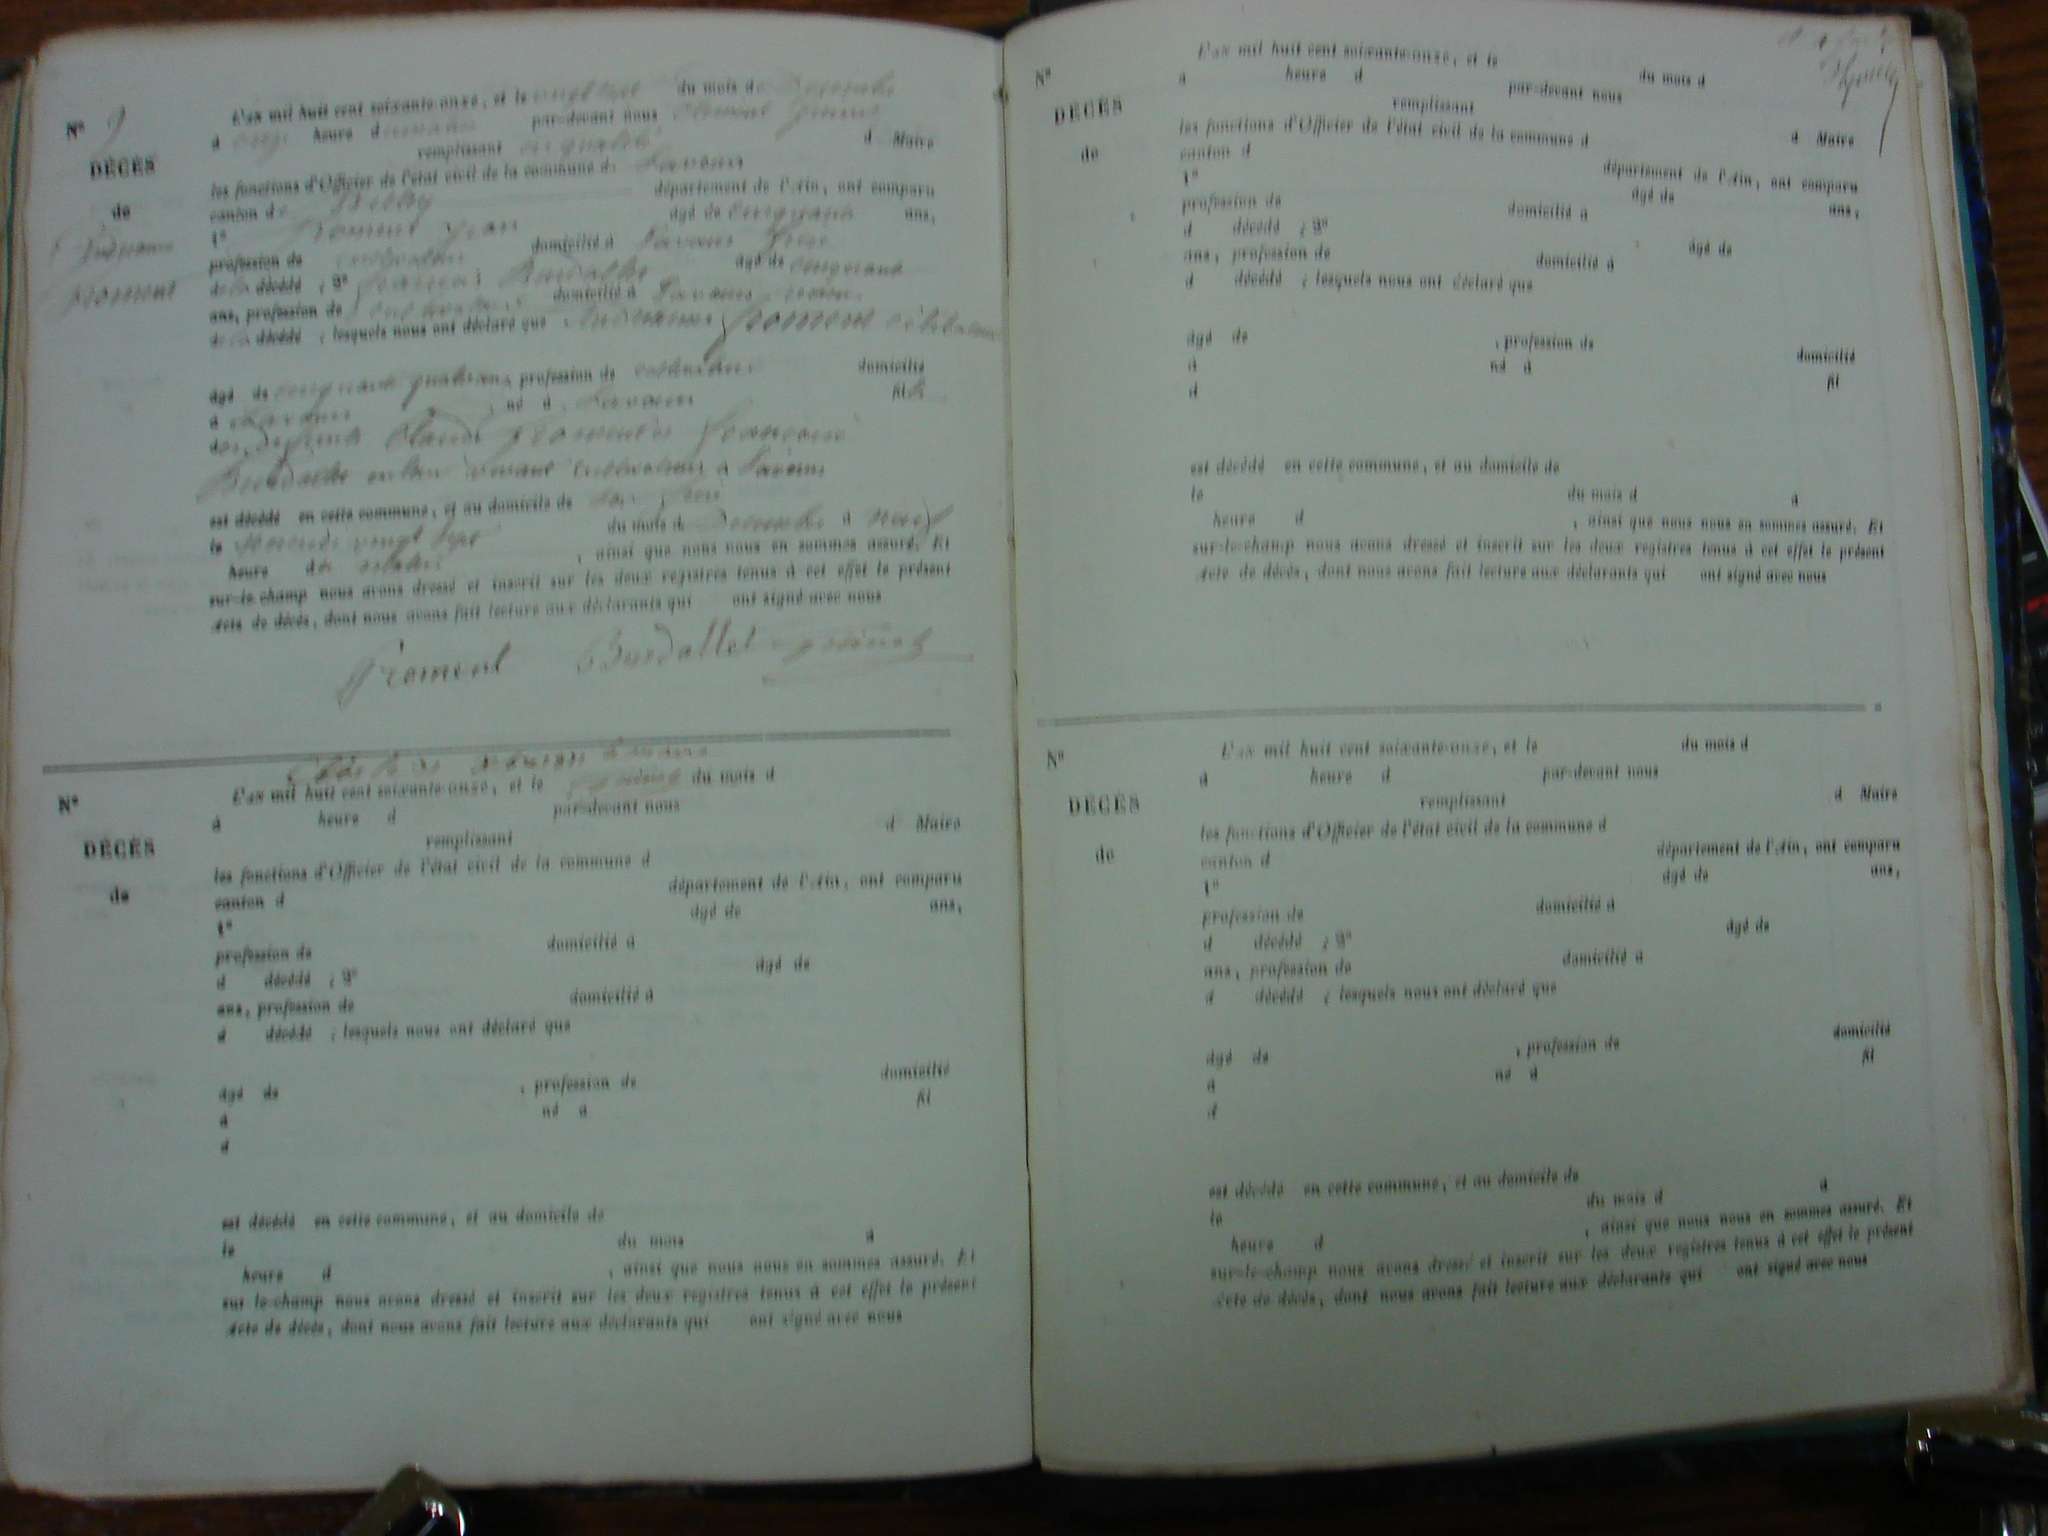 Nº 9
DÉCÈS
de
Froment
L'an mil huit cent soixante-onze, et le vingt sept du mois de Décembre
à onze heure d par-devant nous Clément
remplissant en qualité d Maire
les fonctions d'Officier de l'état civil de la commune de Lavours
canton de Belley département de l'Ain, ont comparu
1º Froment Jean âgé de cinquante ans,
profession de cultivateur domicilié à Lavours frère
de la décédé ; 2º Burdallet âgé de cinquante
ans, profession de cultivateur domicilié à Lavours voisin
de la décédé ; lesquels nous ont déclaré que Froment célibataire
âgé de cinquante quatre ans, profession de domicilié
à Lavours né à Lavours fille
des défunts Claude Froment et Françoise
Burdallet en leur vivant cultivateurs à Lavours
est décédé en cette commune, et au domicile de son frère
le vingt sept du mois de Décembre à neuf
heure du matin, ainsi que nous nous en sommes assuré. Et
sur-le-champ nous avons dressé et inscrit sur les deux registres tenus à cet effet le présent
Acte de décès, dont nous avons fait lecture aux déclarants qui ont signé avec nous
Froment Burdallet
Nº
DÉCÈS
de
L'an mil huit cent soixante-onze, et le du mois d
à heure d par-devant nous
remplissant d Maire
les fonctions d'Officier de l'état civil de la commune d
canton d département de l'Ain, ont comparu
1º âgé de ans,
profession de domicilié à
d décédé ; 2º âgé de
ans, profession de domicilié à
d décédé ; lesquels nous ont déclaré que
âgé de , profession de domicilié
à né à fil
d
est décédé en cette commune, et au domicile de
le du mois à
heure d , ainsi que nous nous en sommes assuré. Et
sur le-champ nous avons dressé et inscrit sur les deux registres tenus à cet effet le présent
Acte de décès, dont nous avons fait lecture aux déclarants qui ont signé avec nous
Nº
DÉCÈS
de
L'an mil huit cent soixante-onze, et le du mois d
à heure d par-devant nous
remplissant d Maire
les fonctions d'Officier de l'état civil de la commune d
canton d département de l'Ain, ont comparu
1º âgé de ans,
profession de domicilié à
d décédé ; 2º âgé de
ans, profession de domicilié à
d décédé ; lesquels nous ont déclaré que
âgé de , profession de domicilié
à né à fil
d
est décédé en cette commune, et au domicile de
le du mois d à
heure d , ainsi que nous nous en sommes assuré. Et
sur-le-champ nous avons dressé et inscrit sur les deux registres tenus à cet effet le présent
Acte de décès, dont nous avons fait lecture aux déclarants qui ont signé avec nous
Nº
DÉCÈS
de
L'an mil huit cent soixante-onze, et le du mois d
à heure d par-devant nous
remplissant d Maire
les fonctions d'Officier de l'état civil de la commune d
canton d département de l'Ain, ont comparu
1º âgé de ans,
profession de domicilié à
d décédé ; 2º âgé de
ans, profession de domicilié à
d décédé ; lesquels nous ont déclaré que
âgé de , profession de domicilié
à né à fil
d
est décédé en cette commune, et au domicile de
le du mois d à
heure d , ainsi que nous nous en sommes assuré. Et
sur-le-champ nous avons dressé et inscrit sur les deux registres tenus à cet effet le présent
Acte de décès, dont nous avons fait lecture aux déclarants qui ont signé avec nous